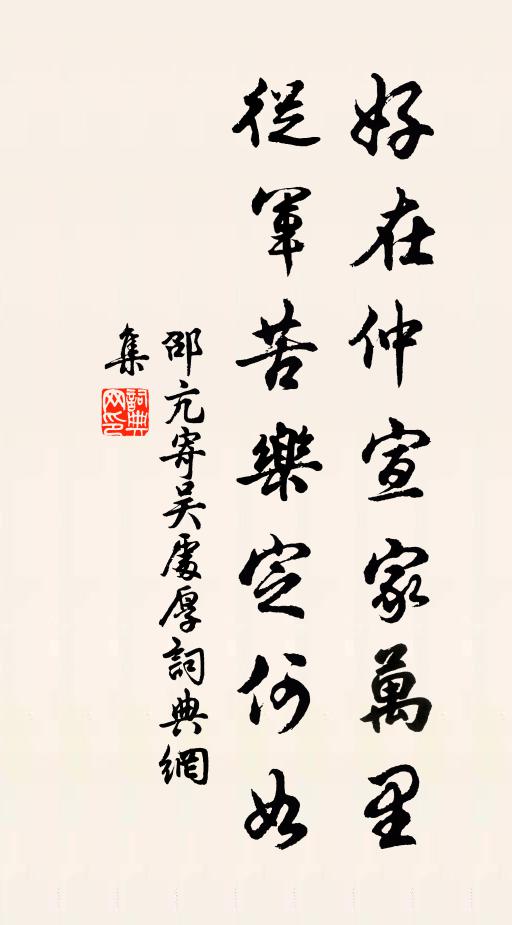 好在仲宣家萬里
從軍苦樂定何如
邵亢寄吳處厚詞典網
集
詞典
网印